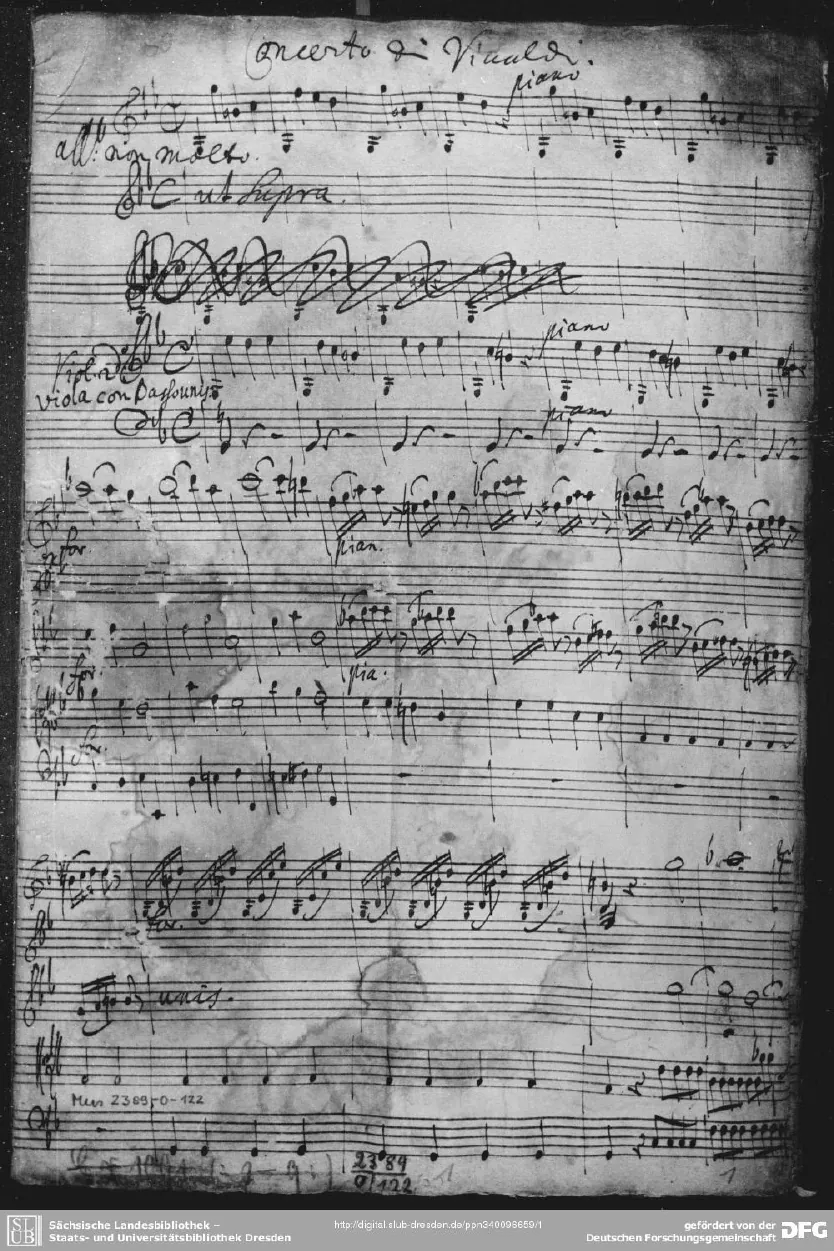 Concerto di Vivaldi.
piano
all.º non molto.
ut supra.
piano
Viol. 2do
viola con Basso unis.
piano
for
pian.
for.
pia.
for.
for.
unis.
Mus 2389-O-122
2389
O/122
1
1
Sächsische Landesbibliothek –
Staats- und Universitätsbibliothek Dresden
http://digital.slub-dresden.de/ppn340096659/1
gefördert von der
Deutschen Forschungsgemeinschaft
DFG
SLUB